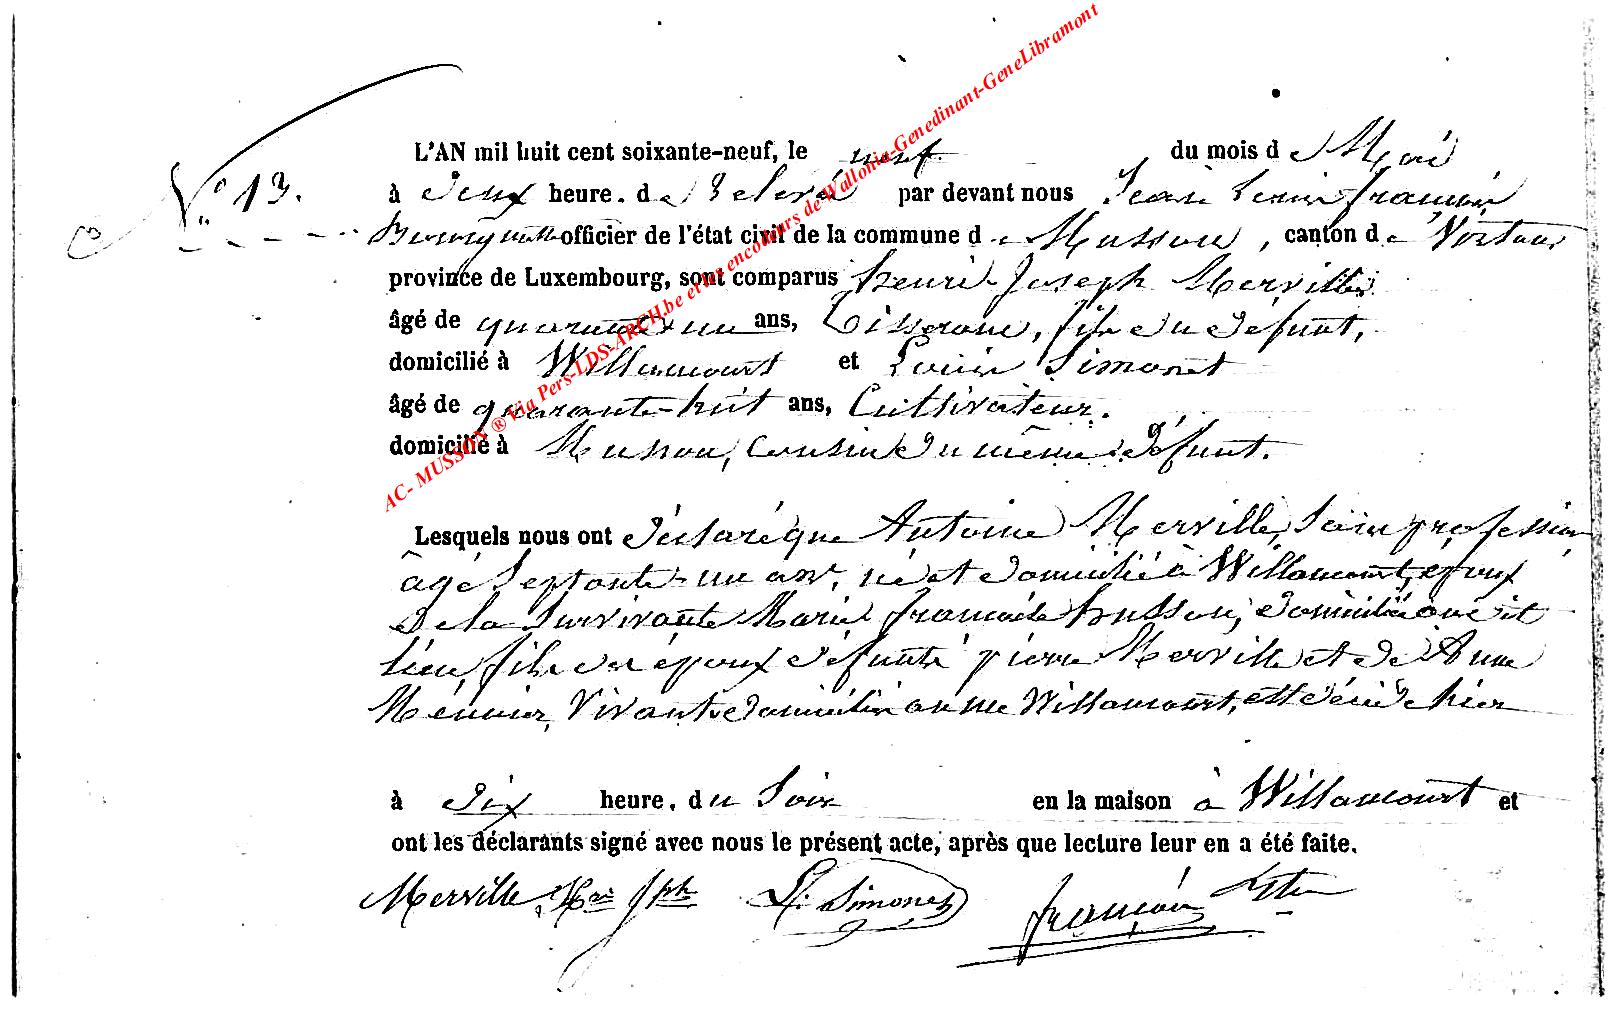 L'AN mil huit cent soixante-neuf, le neuf du mois de Mai
N.° 13.
à deux heure. de relevé par devant nous Jean François
officier de l'état civil de la commune de Musson, canton de Virton
province de Luxembourg, sont comparus henri Joseph Merville
âgé de quarante un ans, Tisserant, fils du defunt,
domicilié à Willancourt et Louis Simonet
âgé de quarante-huit ans, Cultivateur.
domicilié à Musson, Cousin du même défunt.
Lesquels nous ont déclaré que Antoine Merville, sans profession
âgé Septante-un ans, né et domicilié à Willancourt, époux
de la Survivante Marie françoise husson, domiciliée au dit
lieu, fils des époux defunts pierre Merville et de Anne
Meunier, Vivants domiciliés au me Willancourt, est décédé hier
à dix heure. du Soir en la maison à Willancourt et
ont les déclarants signé avec nous le présent acte, après que lecture leur en a été faite.
Merville Hri Jph L. Simonet françois
AC- MUSSON ® Via Pers-LDS-ARCH.be et les encodeurs de Wallonia-Genedinant-GeneLibramont